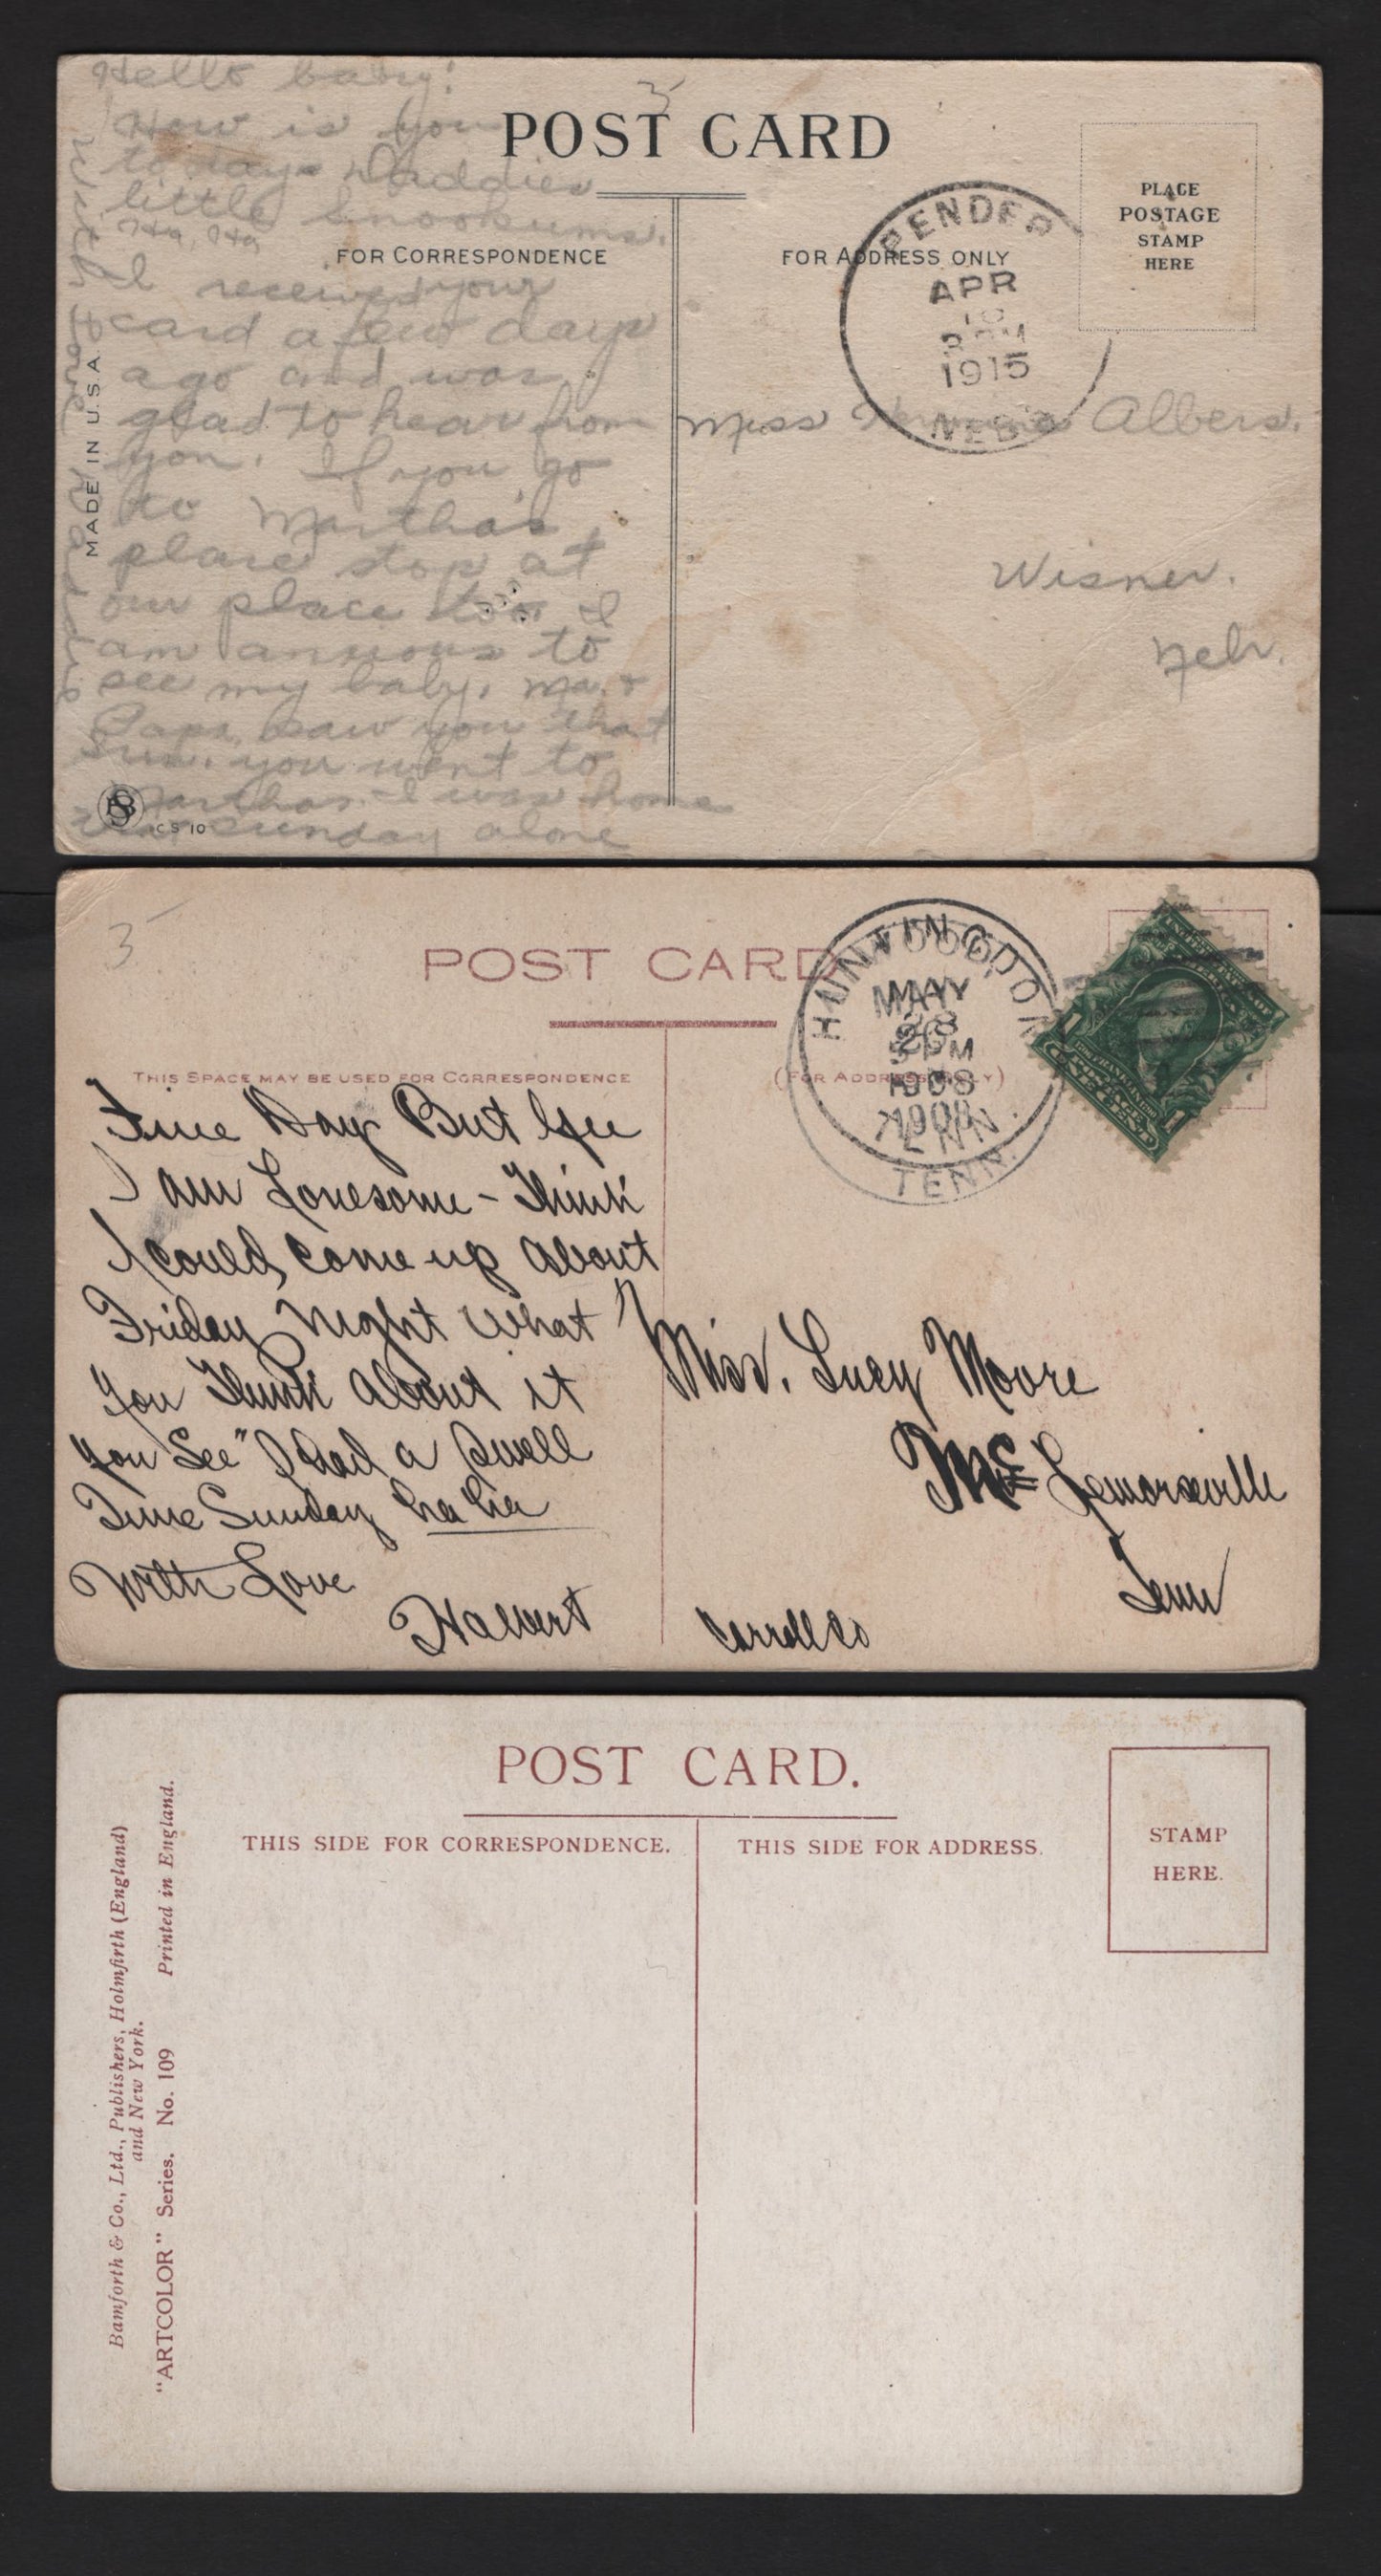 Hello baby!
How is you
today. Daddies
little Snookums.
Ha, Ha
I received your
card a few days
ago and was
glad to hear from
you. If you go
to Martha's
place stop at
our place too. I
am anxious to
see my baby. Ma &
Papa saw you that
Sun. you went to
Marthas. I was home
Sunday alone
3
POST CARD
FOR CORRESPONDENCE
FOR ADDRESS ONLY
PLACE
POSTAGE
STAMP
HERE
PENDER
APR
1915
NEBR
Miss Albers.
Wisner.
Nebr.
MADE IN U.S.A.
CS 10
3
POST CARD
THIS SPACE MAY BE USED FOR CORRESPONDENCE
(FOR ADDRESS ONLY)
HUNTINGDON
MAY
28
PM
1908
TENN.
1
1
Fine Day But Gee
I am Lonesome - Think
I could come up about
Friday Night What
You Think About it
You See" I had a Swell
Time Sunday ha ha
With Love
Halbert
Miss. Lucy Moore
Mc Lemoresville
Tenn
Carroll Co
POST CARD.
THIS SIDE FOR CORRESPONDENCE.
THIS SIDE FOR ADDRESS.
STAMP
HERE.
Bamforth & Co., Ltd., Publishers, Holmfirth (England)
and New York.
"ARTCOLOR" Series. No. 109 Printed in England.